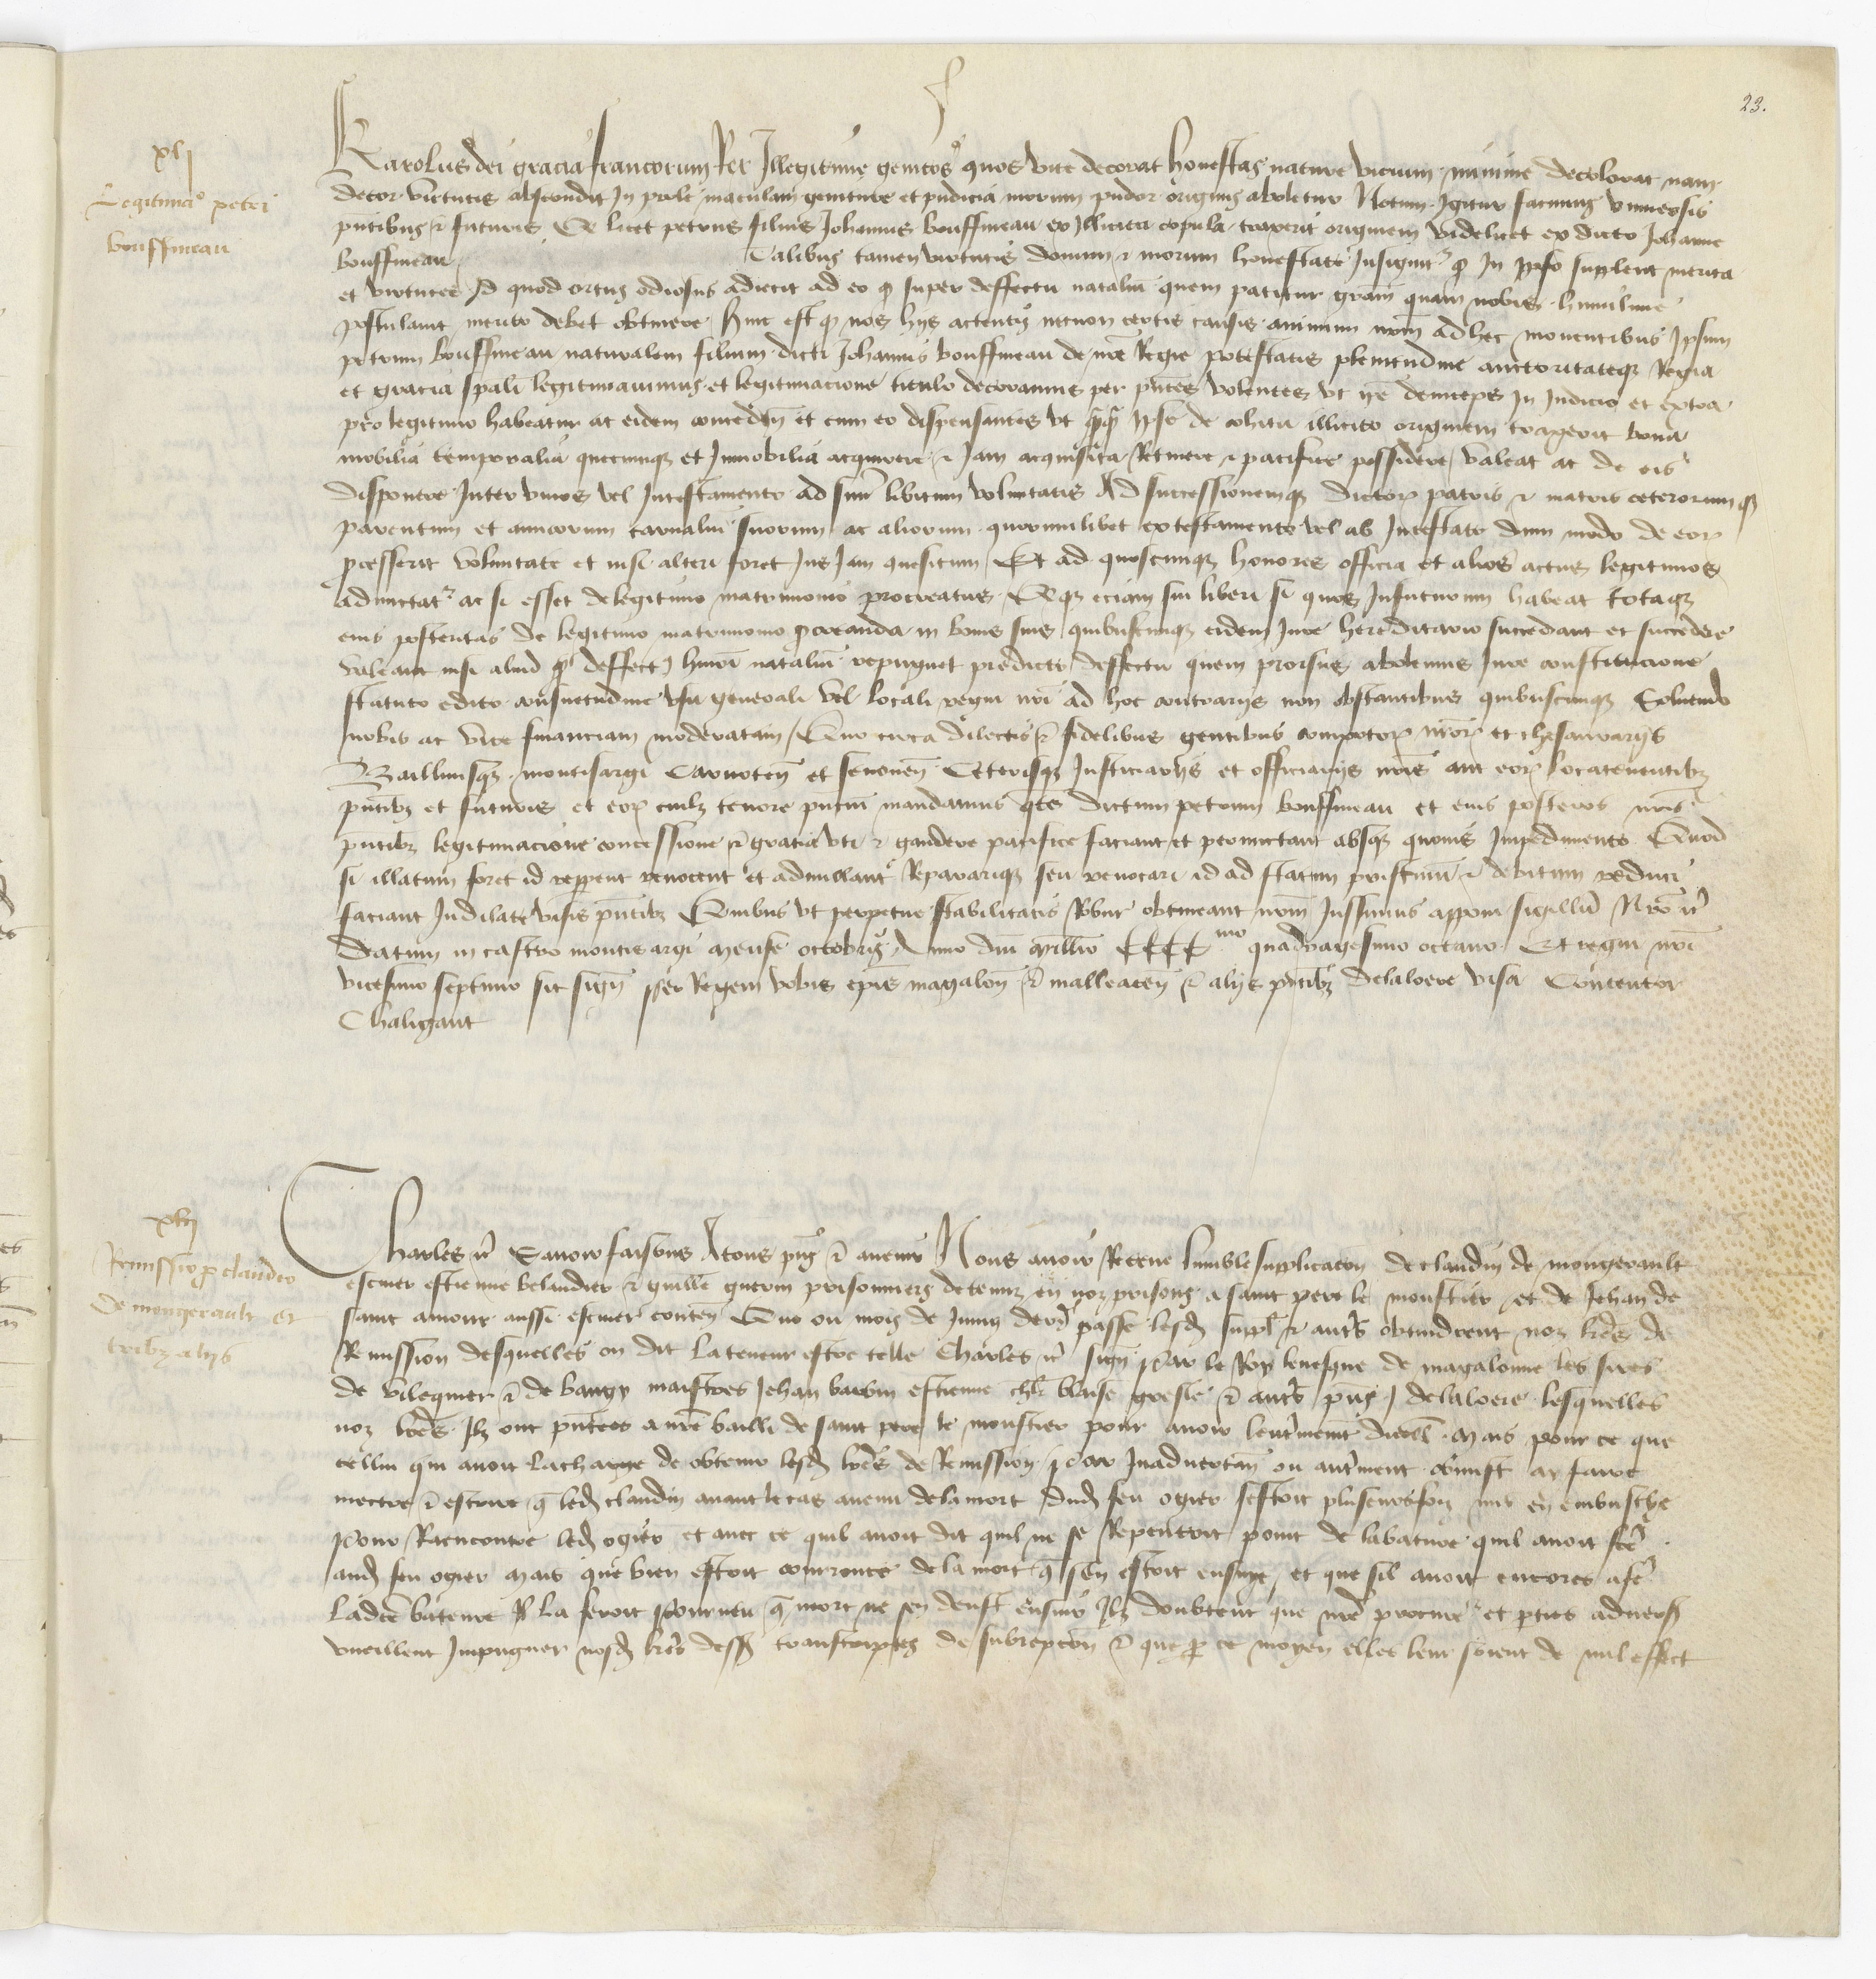 23.
xlj
Legitimacio petri
bouffineau
Karolus dei gracia francorum Rex Illegitime genitos quos vite decorat honestas nature vicium minime decolorat nam
decor virtutis abscondit In prole maculam geniture et pudicia morum pudor originis aboletur Notum Igitur facimus universis
pntibus et futuris Q licet petrus filius Johannis bouffineau ex Illicita copula traxerit originem videlicet ex dicto Johanne
bouffineau Talibus tamen virtutis donum et morum honestate Insignitr q In ipso suplent merita
et virtutes Id quod ortus odiosus adiecit ad eo q super deffectu natalium quem patitur gram quam nobis humilime
postulavit merito debet obtinere Hinc est q nos hys actentis necnon certis causis animum nrm ad hec moventibus Ipsum
petrum bouffineau naturalem filium dicti Johannis bouffineau de nre Regie potestatis plenitudine auctoritateq Regia
et gracia spali legitimavimus et legitimacione titulo decoramus per pntes volentes vt ipse deinceps In Iudicio et extra
pro legitimo habeatur ac eidem concedim et cum eo dispensantes vt qqz ipse de cohitu illicito originem traxerit bona
mobilia temporalia quecumqz et Immobilia acquirere et Jam acquisita Retinere et pacifice possidere valeat ac de eis
disponere Inter vivos vel Intestamento ad suu libitum voluntatis Ad successionemqz dictorz patris et matris ceterorumqz
parentum et amicorum carnaliu suorum ac aliorum quorumlibet ex testamento vel ab Intestato dum modo de eorz
pcesserit voluntate et nisi alteri foret Jus Jam quesitum Et ad quoscumqz honores officia et alios actus legitimos
admictatr ac si esset de legitimo matrimonio procreatus Qqz eciam sui liberi si quos Infuturum habeat totaqz
eius posteritas de legitimo matrimonio pcreanda in bonis suis quibuscumqz eidem Jure hereditario succedant et succedere
valeant nisi aliud q deffectu hmoi nataliu repugnet predicto deffectu quem prorsus abolemus Jure constitucione
statuto edito consuetudine vsu generali vel locali regni nri ad hoc contrariis non obstantibus quibuscumqz Solvendo
nobis ac vice financiam moderatam Quo circa dilectis et fidelibus gentibus compotorz nrorz et thesaurariis
Baillivisqz montisargi Carnoten et senonen Ceterisqz Justiciariis et officiariis nris aut eorz locatenentibz
pntibz et futuris et eorz cuilz tenore pntiu mandamus qtes dictum petrum bouffineau et eius posteros nris
pntibz legitimacione concessione et gratia vti et gaudere pacifice faciant et permictant absqz quovis Impedimento Quod
si illatum foret id repperit revocent et adnullent Reparariqz seu revocari id ad statum pristinu et debitum reduci
faciant Indilate visis pntibz Quibus vt perpetue stabilitatis Robur obtineant nrm Jussimus apponi sigillu Nro ir
Datum in castro montisargi mense octobris Anno dni millio CCCC mo quadragesimo octavo Et regni nri
vicesimo septimo sic sign per Regem vobis epis magalon et malleacen et aliis pntibz delaloere visa Contentor
Chaligaut
xlij
Remissio p claudio
de mongerault et
tribz aliis
Charles ir Savoir faisons Atous pns et avenir Nous avoir Receue lumble supplicacon de claudin de mongerault
escuier estienne belaudier et guille guerin prisonniers detenuz en noz prisons a saint pere le monstier et de Jehan de
saint amour aussi escuier conten Que ou mois de Juing derr passe lesd suppl et autrs obtindrent noz lres de
Remission desquelles on dit la teneur estre telle Charles ir sign par le Roy levesque de magalonne les sires
de vilequier et de baugy maistres Jehan bareau estienne chlr blaise gresle et autrs pns J delaloere lesquelles
noz lres Ilz ont pntees a nre bailli de saint pere le monstier pour avoir lentnemnt dicell mais pour ce que
cellui qui avoit la charge de obtenir lesd lres de Remission par Inadvertan ou autrment obmist ay faire
mectre et escrire q led claudin avant le cas avenu de la mort dud feu ogier sestoit pluseursfoiz mis en embusche
pour Rencontre led ogier et avec ce quil avoit dit quil ne se Repentoit point de la bature quil avoit fce
aud feu ogier mais que bien estoit courroucé de la mort q sen estoit ensuye et que sil avoit encores afe
ladce bateure Il la feroit pourveu q mort ne sen deust ensuir Ilz doubtent que nre procure et pties adverss
vueillent Impugner nosd lres dess transcriptes de subrepcon et que p ce moyen elles leur soient de nul effect